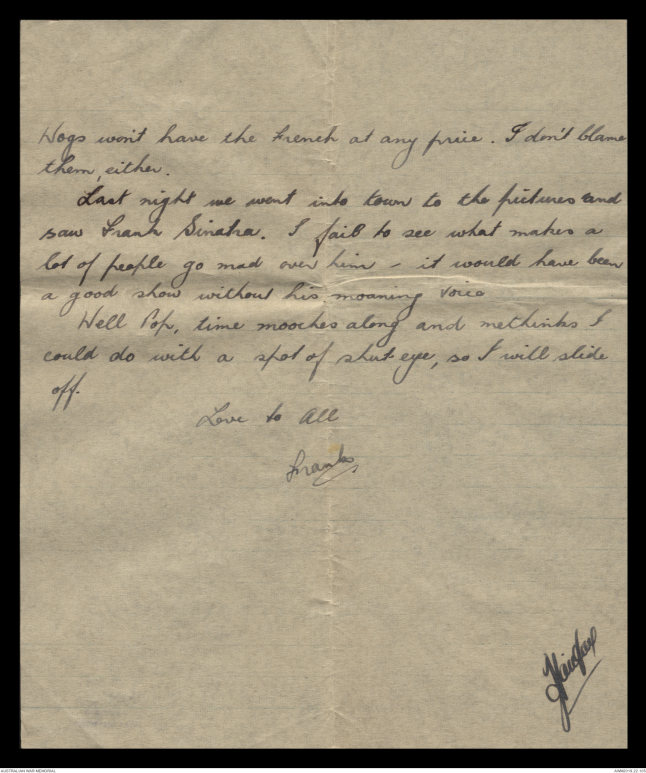 Wogs won't have the French at any price. I don't blame
them, either.
Last night we went into town to the pictures and
saw Frank Sinatra. I fail to see what makes a
lot of people go mad over him - it would have been
a good show without his moaning voice
Well Pop, time mooches along and methinks I
could do with a spot of shut-eye, so I will slide
off.
Love to All
Frank
AUSTRALIAN WAR MEMORIAL